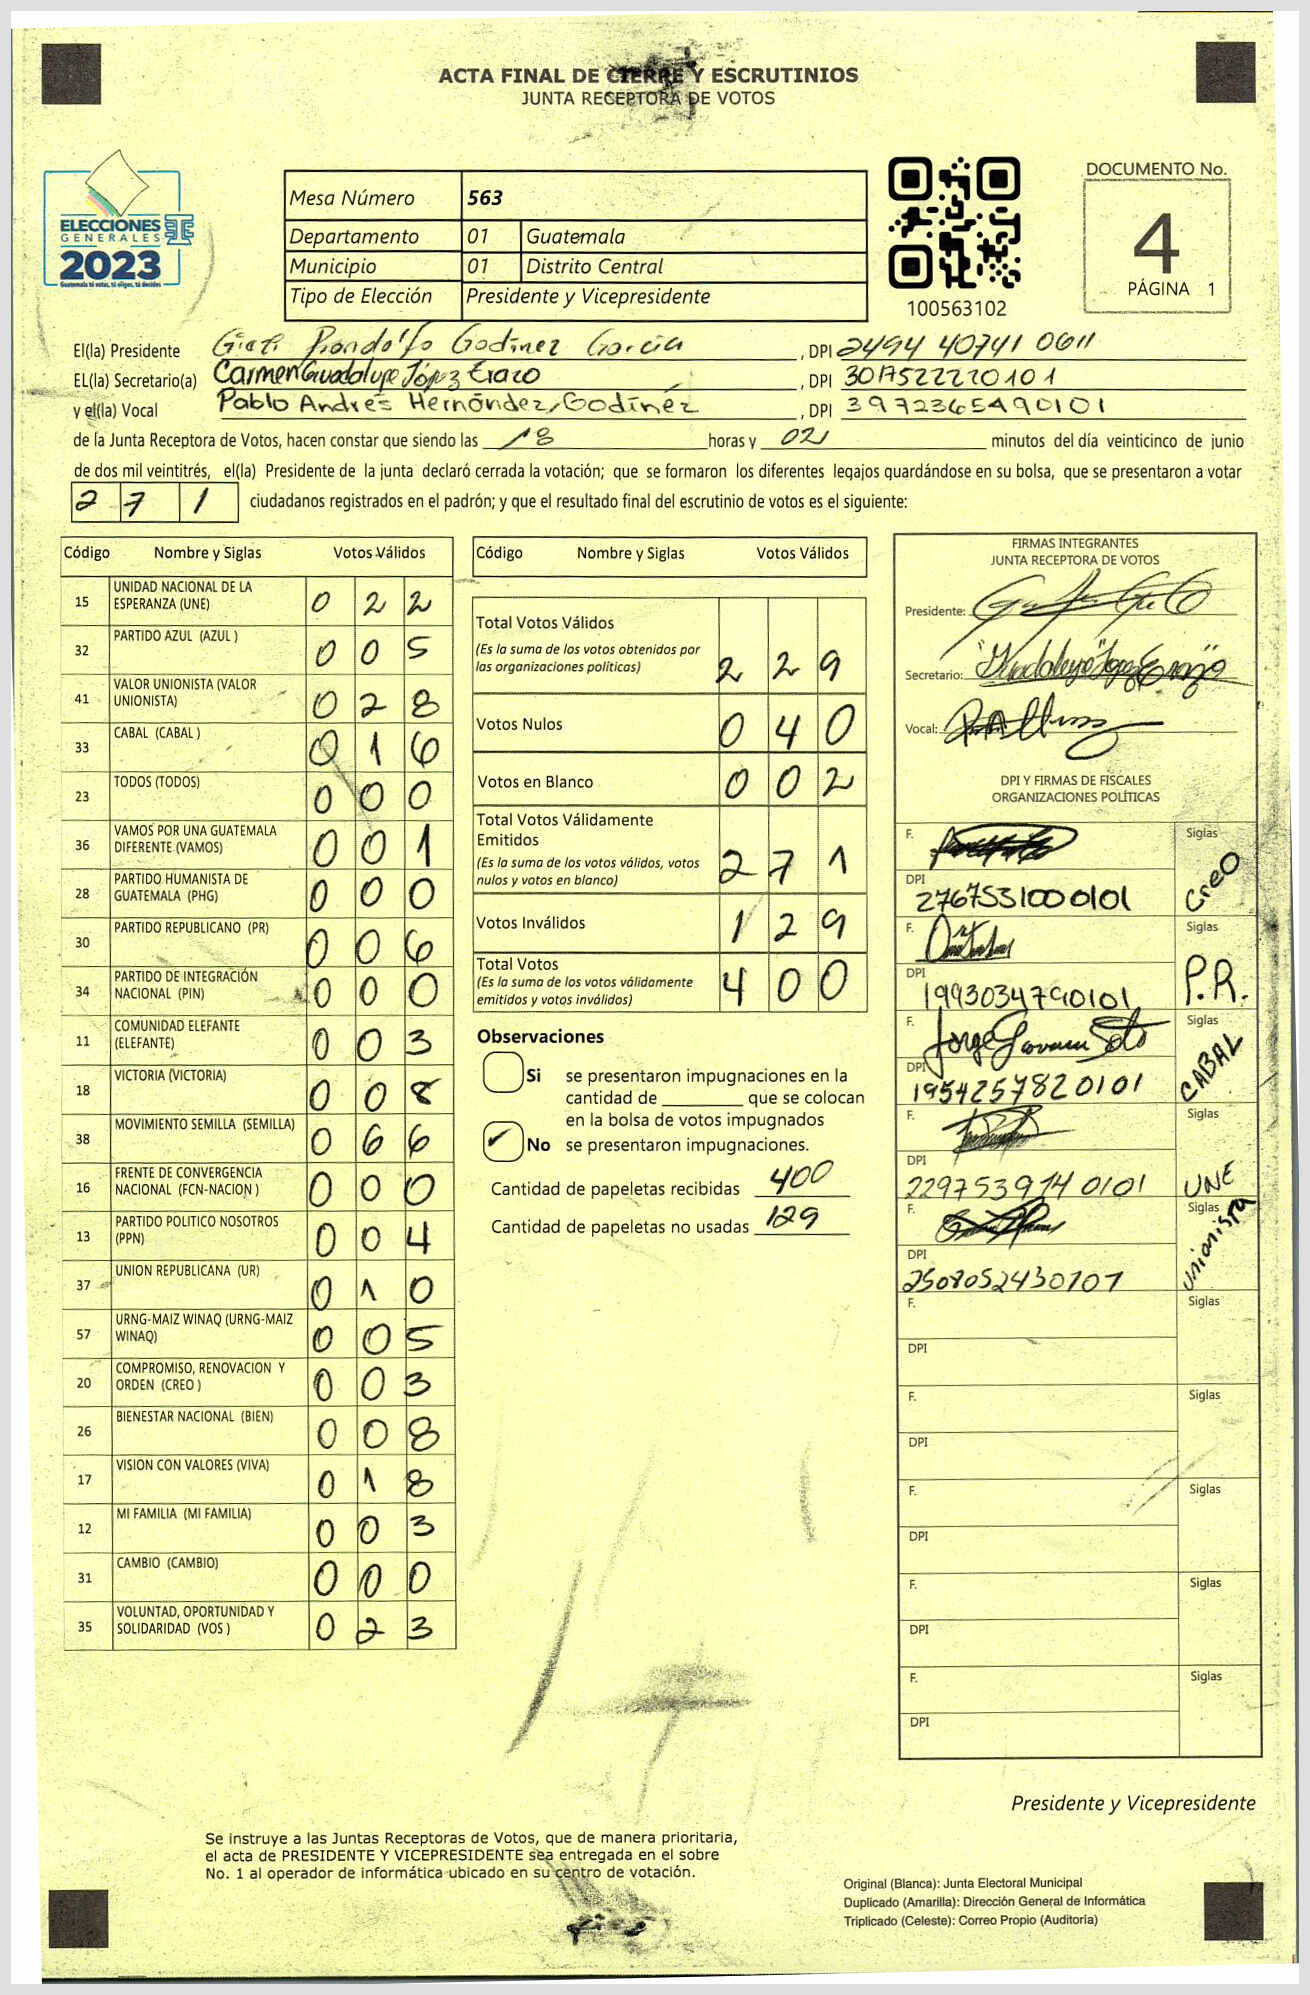 ACTA FINAL DE CIERRE Y ESCRUTINIOS
JUNTA RECEPTORA DE VOTOS
ELECCIONES
GENERALES
2023
Guatemala tú votas, tú eliges, tú decides
Mesa Número 563
Departamento 01 Guatemala
Municipio 01 Distrito Central
Tipo de Elección Presidente y Vicepresidente
100563102
DOCUMENTO No.
4
PÁGINA 1
El(la) Presidente Rondolfo Godinez García , DPI 2494 40741 0611
EL(la) Secretario(a) Carmen Guadalupe López Erazo , DPI 3017522220101
y el(la) Vocal Pablo Andrés Hernández Godínez , DPI 3972365490101
de la Junta Receptora de Votos, hacen constar que siendo las 18 horas y 02 minutos del día veinticinco de junio
de dos mil veintitrés, el(la) Presidente de la junta declaró cerrada la votación; que se formaron los diferentes legajos quardándose en su bolsa, que se presentaron a votar
2 7 1 ciudadanos registrados en el padrón; y que el resultado final del escrutinio de votos es el siguiente:
Código Nombre y Siglas Votos Válidos
15 UNIDAD NACIONAL DE LA ESPERANZA (UNE) 0 2 2
32 PARTIDO AZUL (AZUL ) 0 0 5
41 VALOR UNIONISTA (VALOR UNIONISTA) 0 2 8
33 CABAL (CABAL ) 0 1 6
23 TODOS (TODOS) 0 0 0
36 VAMOS POR UNA GUATEMALA DIFERENTE (VAMOS) 0 0 1
28 PARTIDO HUMANISTA DE GUATEMALA (PHG) 0 0 0
30 PARTIDO REPUBLICANO (PR) 0 0 6
34 PARTIDO DE INTEGRACIÓN NACIONAL (PIN) 0 0 0
11 COMUNIDAD ELEFANTE (ELEFANTE) 0 0 3
18 VICTORIA (VICTORIA) 0 0 8
38 MOVIMIENTO SEMILLA (SEMILLA) 0 6 6
16 FRENTE DE CONVERGENCIA NACIONAL (FCN-NACION ) 0 0 0
13 PARTIDO POLITICO NOSOTROS (PPN) 0 0 4
37 UNION REPUBLICANA (UR) 0 1 0
57 URNG-MAIZ WINAQ (URNG-MAIZ WINAQ) 0 0 5
20 COMPROMISO, RENOVACION Y ORDEN (CREO ) 0 0 3
26 BIENESTAR NACIONAL (BIEN) 0 0 8
17 VISION CON VALORES (VIVA) 0 1 8
12 MI FAMILIA (MI FAMILIA) 0 0 3
31 CAMBIO (CAMBIO) 0 0 0
35 VOLUNTAD, OPORTUNIDAD Y SOLIDARIDAD (VOS ) 0 2 3
Código Nombre y Siglas Votos Válidos
Total Votos Válidos 2 2 9
(Es la suma de los votos obtenidos por
las organizaciones políticas)
Votos Nulos 0 4 0
Votos en Blanco 0 0 2
Total Votos Válidamente
Emitidos 2 7 1
(Es la suma de los votos válidos, votos
nulos y votos en blanco)
Votos Inválidos 1 2 9
Total Votos 4 0 0
(Es la suma de los votos válidamente
emitidos y votos inválidos)
Observaciones
Si se presentaron impugnaciones en la
cantidad de ________ que se colocan
en la bolsa de votos impugnados
✓ No se presentaron impugnaciones.
Cantidad de papeletas recibidas 400
Cantidad de papeletas no usadas 129
FIRMAS INTEGRANTES
JUNTA RECEPTORA DE VOTOS
Presidente:
Secretario: "Guadalupe" López Erazo
Vocal:
DPI Y FIRMAS DE FISCALES
ORGANIZACIONES POLÍTICAS
F. Siglas
DPI 2767531000101 Creo
F. Siglas
DPI 1993034790101 P.R.
F. Jorge Giovanni Soto Siglas
DPI 1954257820101 CABAL
F. Siglas
DPI 2297539140101 UNE
F. Siglas
DPI 2508052430101 Unionista
F. Siglas
DPI
F. Siglas
DPI
F. Siglas
DPI
F. Siglas
DPI
F. Siglas
DPI
Presidente y Vicepresidente
Se instruye a las Juntas Receptoras de Votos, que de manera prioritaria,
el acta de PRESIDENTE Y VICEPRESIDENTE sea entregada en el sobre
No. 1 al operador de informática ubicado en su centro de votación.
Original (Blanca): Junta Electoral Municipal
Duplicado (Amarilla): Dirección General de Informática
Triplicado (Celeste): Correo Propio (Auditoría)